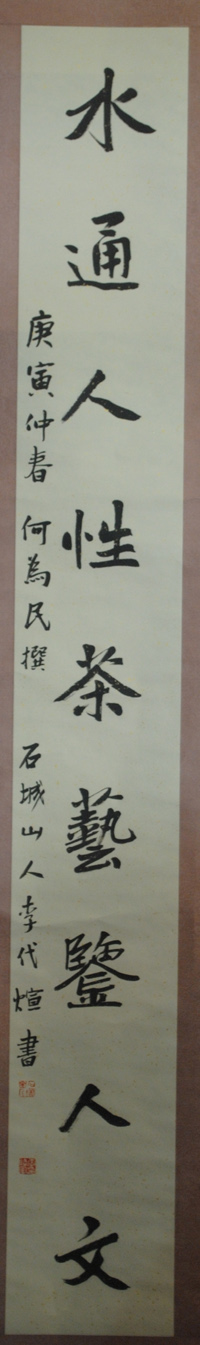 水通人性茶藝鑒人文
庚寅仲春 何為民撰 石城山人李代煊書